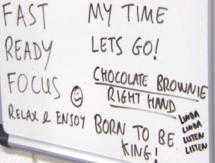 FAST
READY
FOCUS
RELAX & ENJOY
MY TIME
LETS GO!
CHOCOLATE BROWNIE
RIGHT HAND
BORN TO BE
KING!
LINDA
LINDA
LISTEN
LISTEN